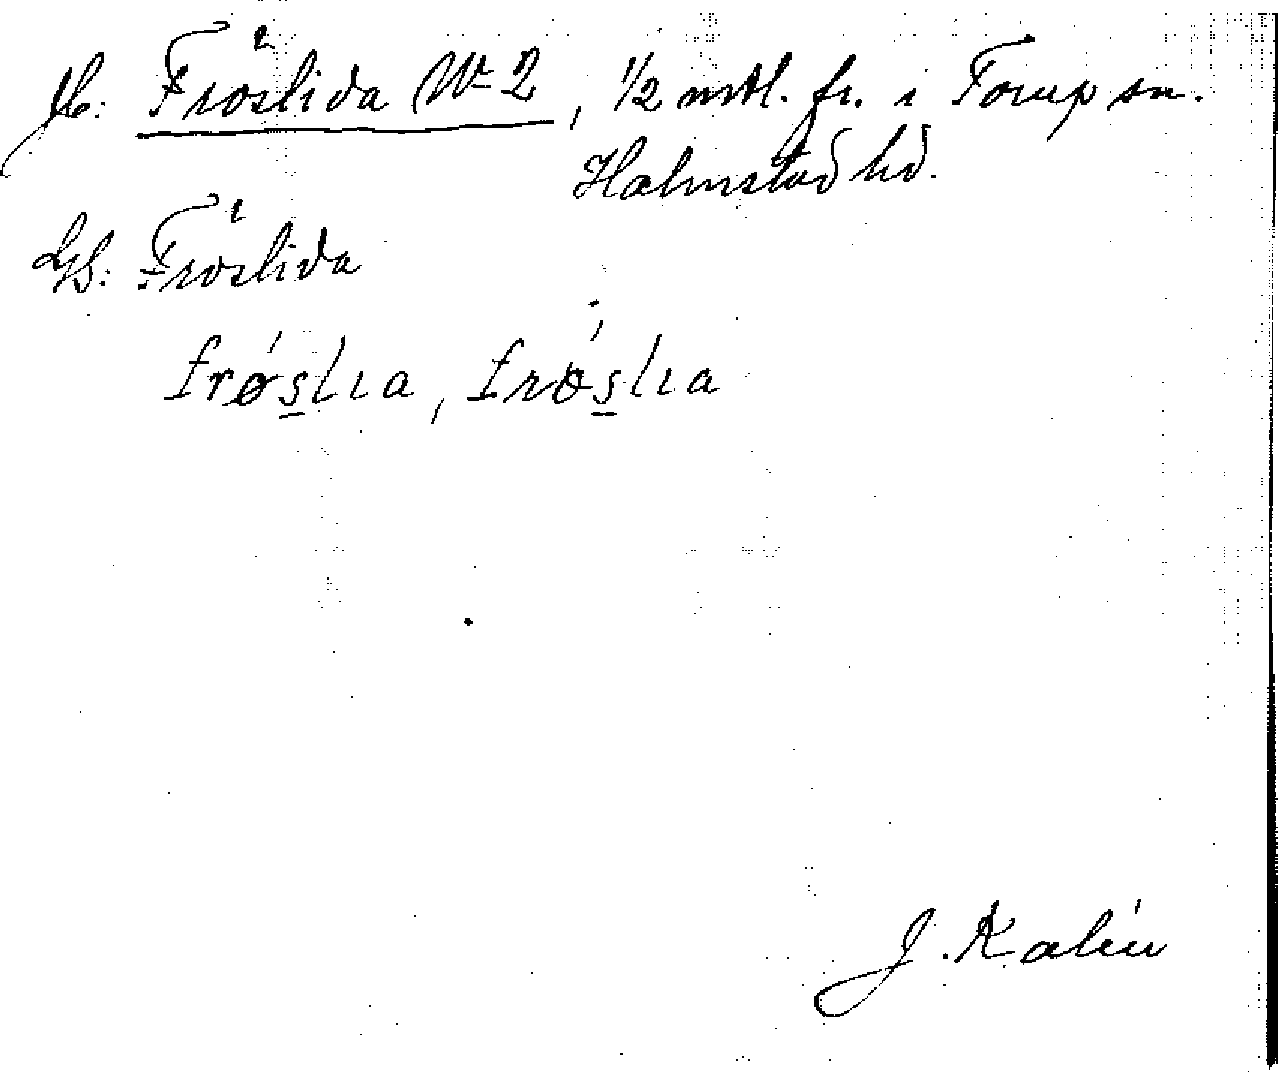 Jb: Fröslida No 2, 1/2 mtl. fr. i Torup sn.
Halmstad hd.
GS: Fröslida
frǿs̲lıa, frǿs̲lıa
J. Kalén